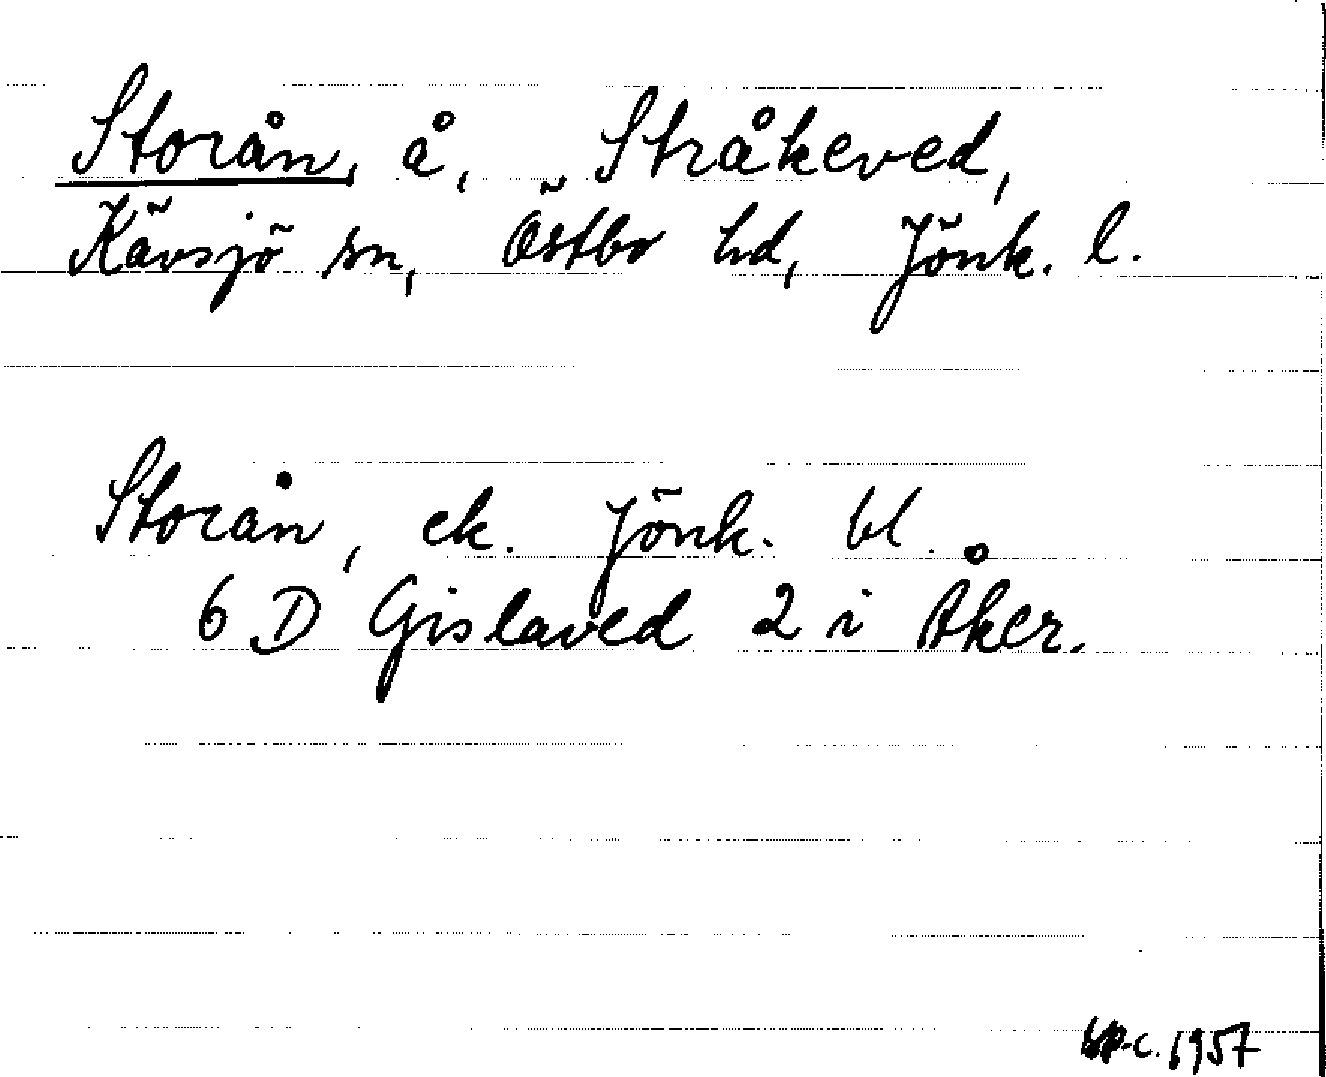 Storån, å, Stråkeved,
Kävsjö sn, Östbo hd, Jönk. l.
Storån, ek. Jönk. bl.
6 D Gislaved 2 i Åker.
1957